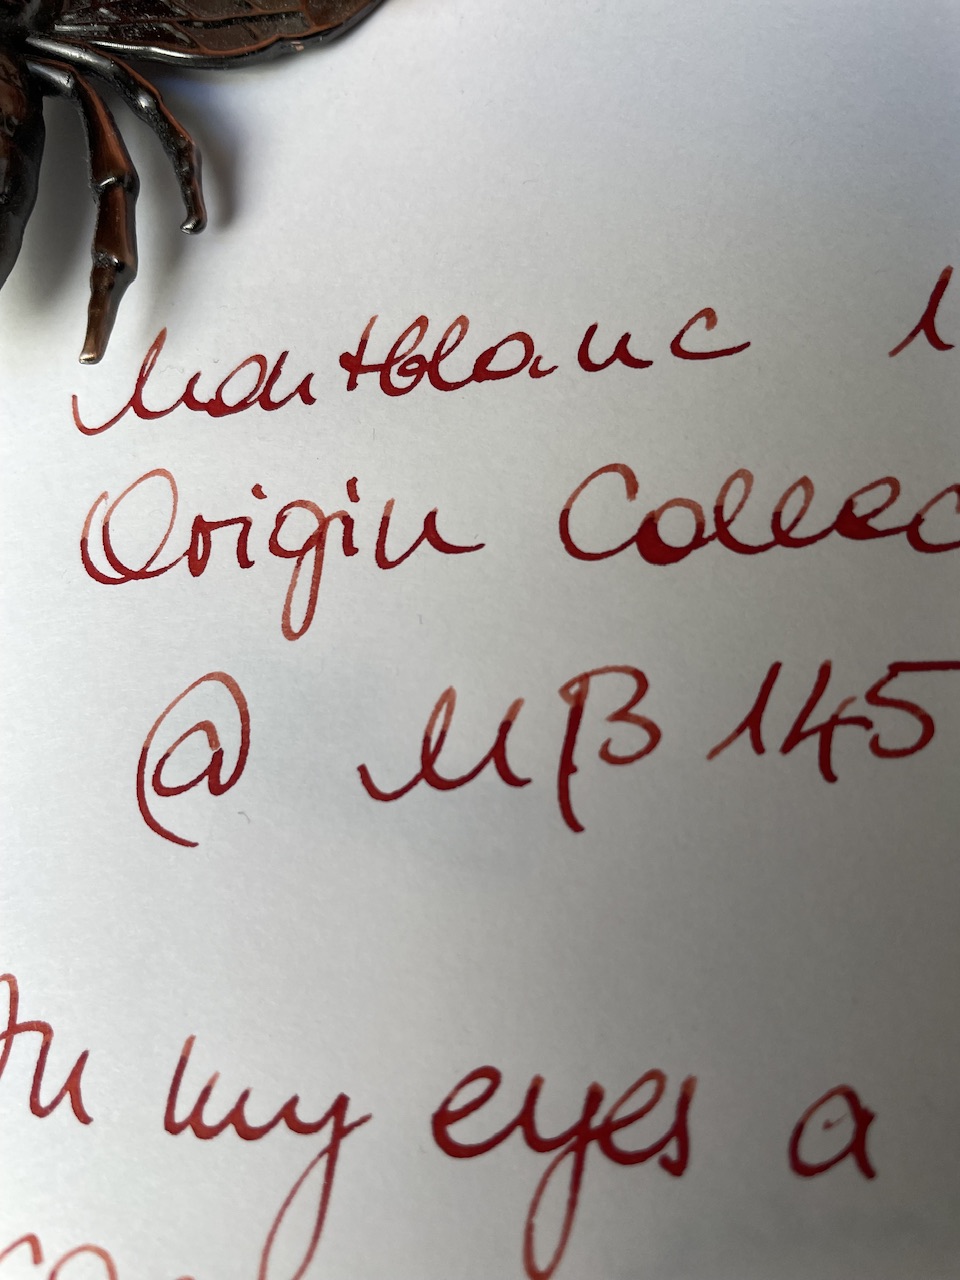 Montblanc 1
Origin Collec
@ MB 145
In my eyes a